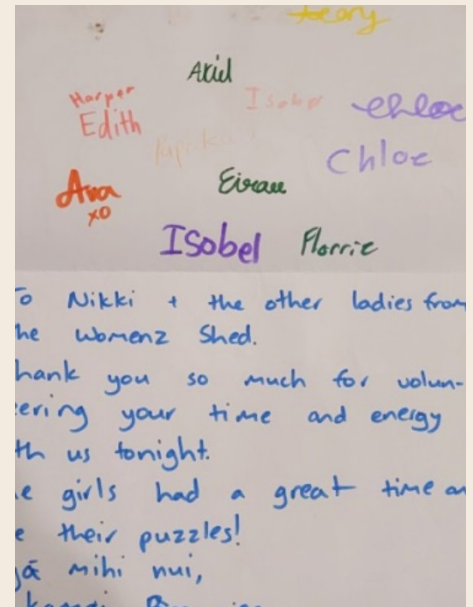 Axid
Harper
Edith
Isobel
Chloe
Chloe
Ava
xo
Isobel
Florrie
To Nikki + the other ladies from
the Womenz Shed.
hank you so much for volun-
ering your time and energy
th us tonight.
e girls had a great time an
e their puzzles!
mihi nui,